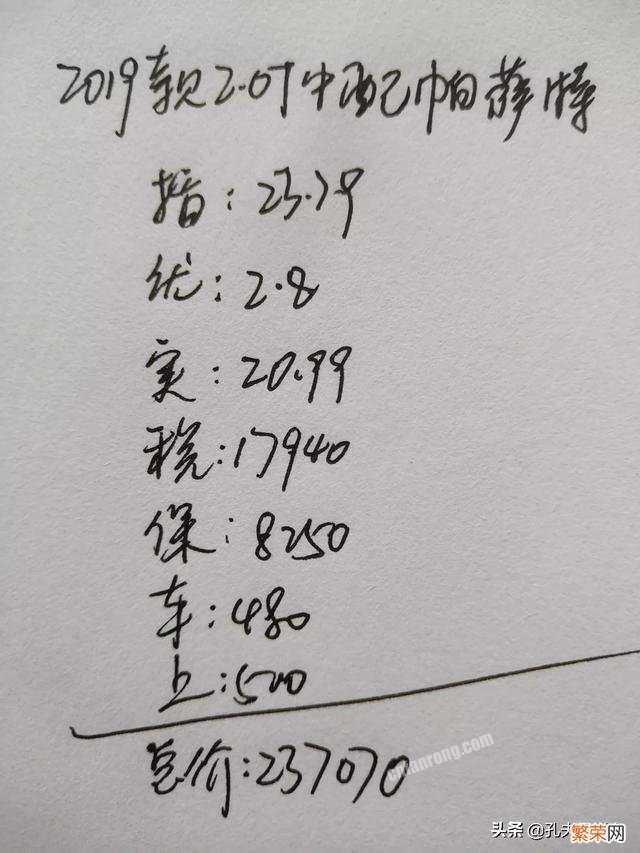 2019款2.0T中配帕萨特
指：23.79
优：2.8
实：20.99
税：17940
保：8250
车：480
上：500
总价：237070
cnfanrong.com
头条@孔夫
繁荣网